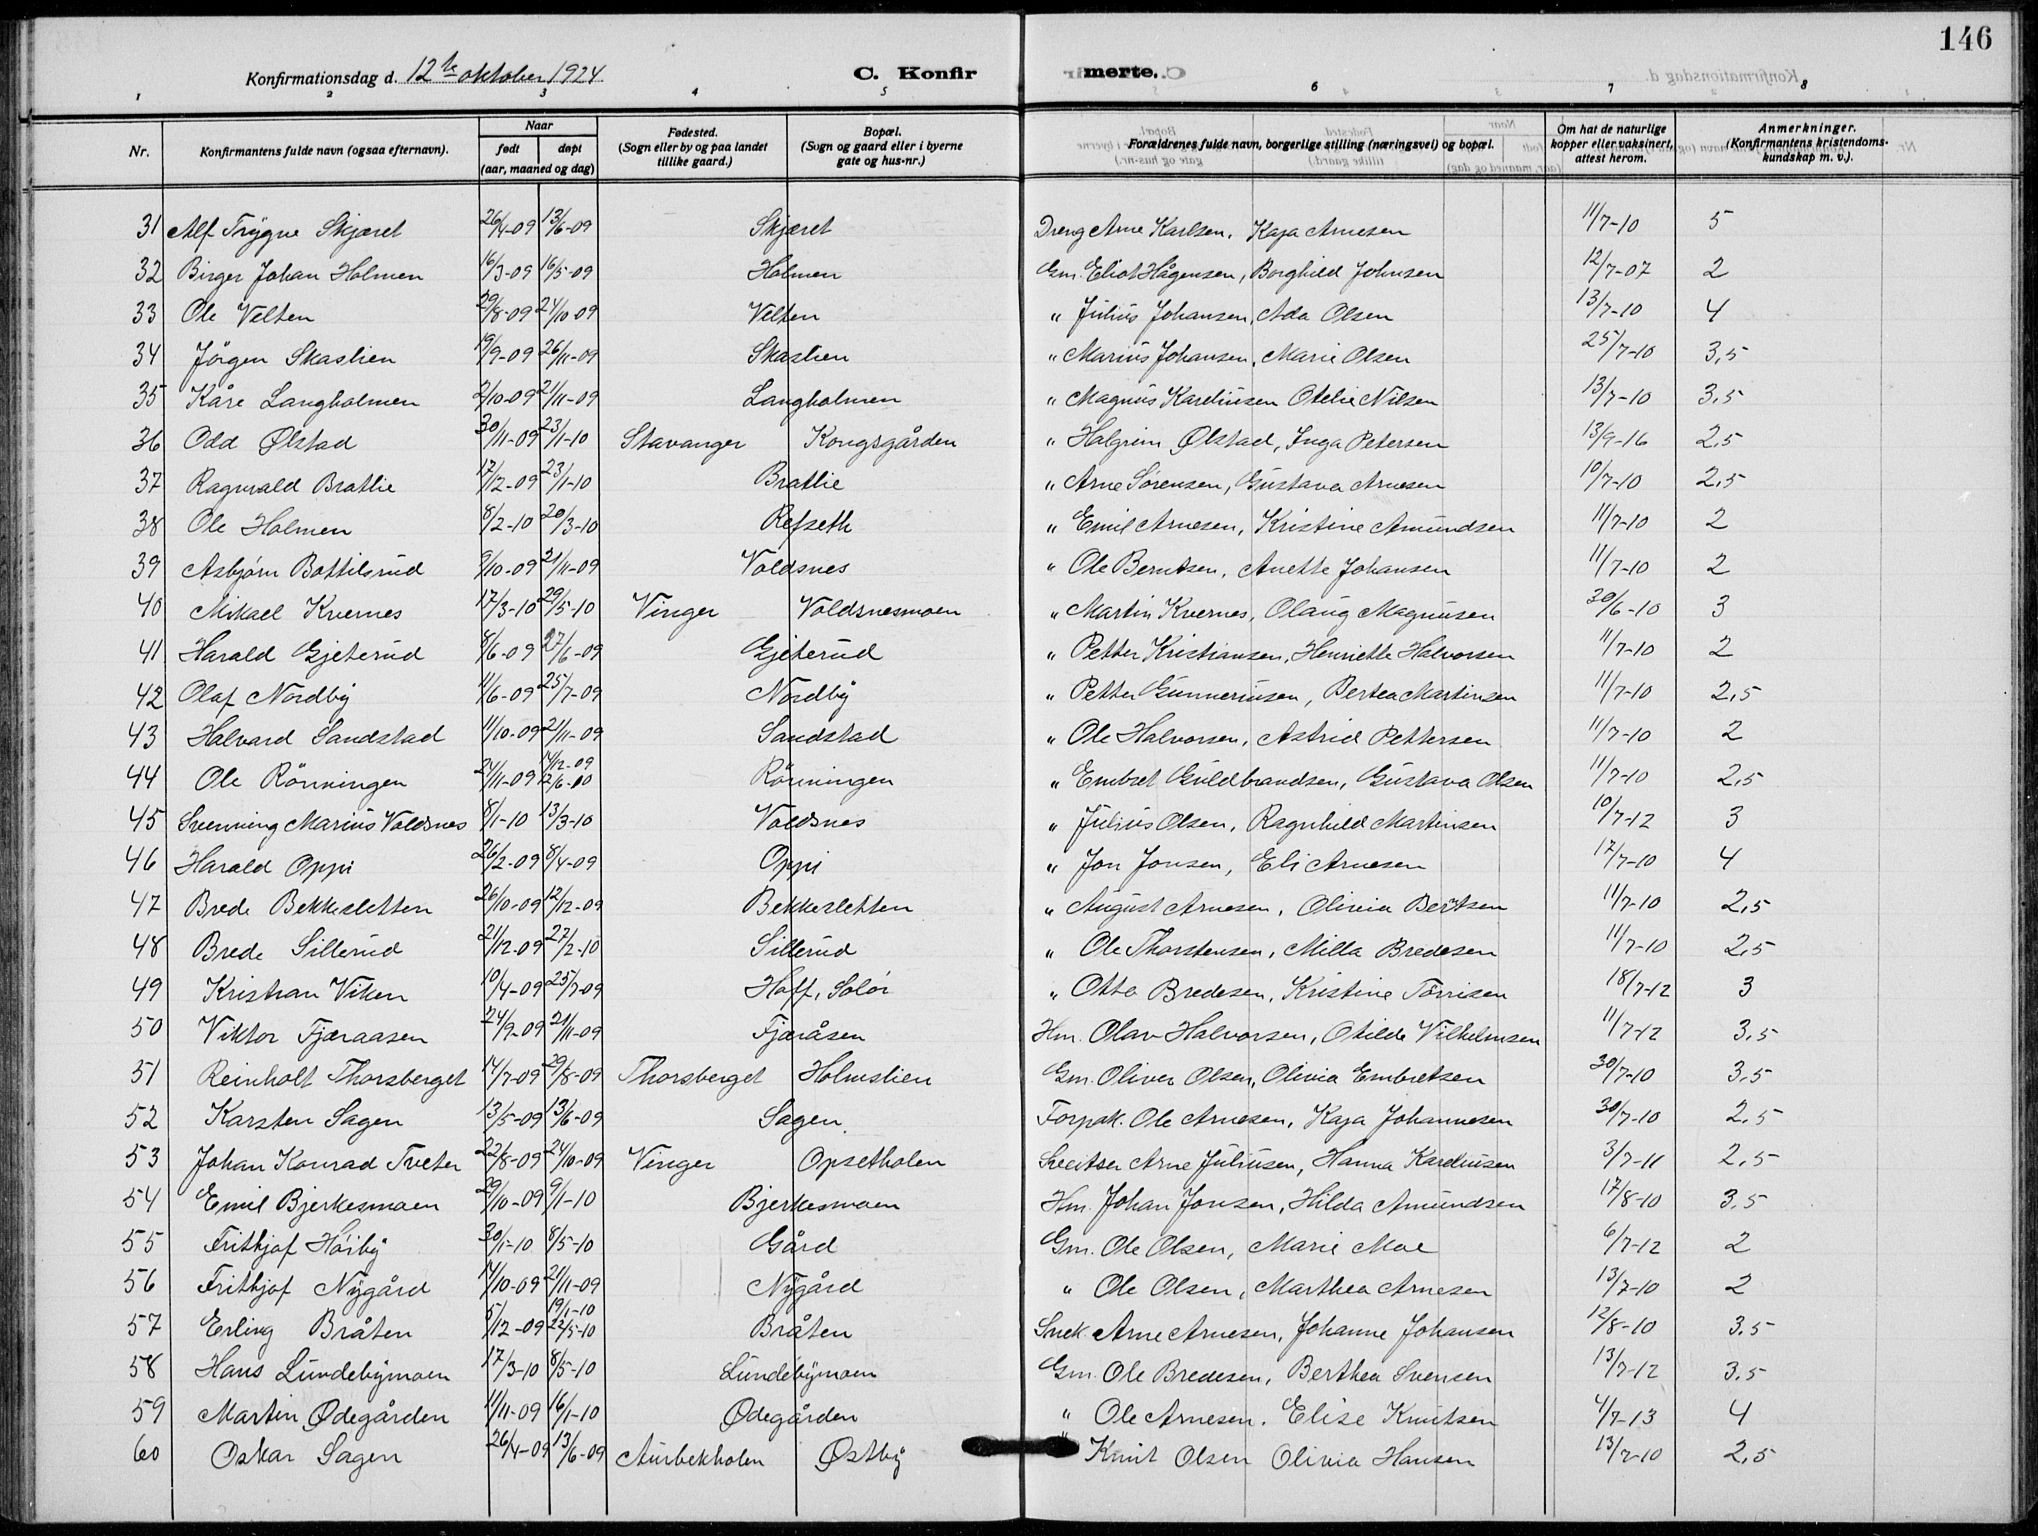 146
Konfirmationsdag d. 12te oktober 1924. C. Konfirmerte.
1 2 3 4 5 6 7 8
Nr. Konfirmantens fulde navn (ogsaa efternavn). Naar født døpt (aar, maaned og dag) Fødested. (Sogn eller by og paa landet tillike gaard.) Bopæl. (Sogn og gaard eller i byerne gate og hus-nr.) Forældrenes fulde navn, borgerlige stilling (næringsvei) og bopæl. Om hat de naturlige kopper eller vaksinert, attest herom. Anmerkninger. (Konfirmantens kristendomskundskap m. v.).
31 Alf Trygve Skjæret 26/4-09 13/6-09 Skjæret Dreng Arne Karlsen, Kaja Arnesen 11/7-10 5
32 Birger Johan Holmen 16/3-09 16/5-09 Holmen Gm. Eliot Hågensen, Borghild Johnsen 12/7-07 2
33 Ole Velten 29/8-09 24/10-09 Velten " Julius Johansen, Ada Olsen 13/7-10 4
34 Jörgen Skaslien 19/9-09 26/11-09 Skaslien " Marius Johansen, Marie Olsen 25/7-10 3,5
35 Kåre Langholmen 2/10-09 21/11-09 Langholmen " Magnus Kareliusen Otelie Nilsen 13/7-10 3,5
36 Odd Ølstad 30/11-09 23/1-10 Stavanger Kongsgården " Halgrim Ølstad, Inga Petersen 13/9-16 2,5
37 Ragnvald Bratlie 17/12-09 23/1-10 Bratlie " Arne Sørensen, Gustava Arnesen 10/7-10 2,5
38 Ole Holmen 8/2-10 20/3-10 Refseth " Emil Arnesen, Kristine Amundsen 11/7-10 2
39 Asbjørn Bottilsrud 9/10-09 21/11-09 Voldsnes " Ole Berntsen, Anette Johansen 11/7-10 2
40 Mikael Kvernes 17/3-10 29/5-10 Vinger Voldsnesmoen " Martin Kvernes, Olaug Magnusen 30/6-10 3
41 Harald Gjeterud 8/6-09 27/6-09 Gjeterud " Petter Kristiansen, Henriette Halvorsen 11/7-10 2
42 Olaf Nordby 11/6-09 25/7-09 Nordby " Petter Gunneriusen, Bertea Martinsen 11/7-10 2,5
43 Halvard Sandstad 11/10-09 21/11-09 Sandstad " Ole Halvorsen, Astrid Pettersen 11/7-10 2
44 Ole Rönningen 24/11-09 14/12-09 12/6-00 Rönningen " Embret Guldbrandsen, Gustava Olsen 11/7-10 2,5
45 Svenning Marius Voldsnes 8/1-10 13/3-10 Voldsnes " Julius Olsen, Ragnhild Martinsen 10/7-12 3
46 Harald Oppi 26/2-09 8/4-09 Oppi " Jon Jonsen, Eli Arnesen 17/7-10 4
47 Brede Bekkesletten 26/10-09 12/12-09 Bekkesletten " August Arnesen, Olivia Bertsen 11/7-10 2,5
48 Brede Sillerud 21/12-09 27/2-10 Sillerud " Ole Thorstensen, Milla Bredesen 11/7-10 2,5
49 Kristian Viken 10/4-09 25/7-09 Hoff, Solör " Otto Bredesen, Kristine Törrisen 18/7-12 3
50 Viktor Fjæraasen 24/9-09 21/11-09 Fjæråsen Hm. Olav Halvorsen, Otilde Vilhelmsen 11/7-12 3,5
51 Reinholt Thorsberget 14/7-09 29/8-09 Thorsberget Holmslien Gm. Oliver Olsen, Olivia Embretsen 30/7-10 3,5
52 Karsten Sagen 13/5-09 13/6-09 Sagen Forpak. Ole Arnesen, Kaja Johannesen 30/7-10 2,5
53 Johan Konrad Tveter 22/8-09 24/10-09 Vinger Opsetholen Sveitser Arne Juliusen, Hanna Kareliusen 3/7-11 2,5
54 Emil Bjerkesmoen 29/10-09 9/1-10 Bjerkesmoen Hm. Johan Jonsen, Hilda Amundsen 17/8-10 3,5
55 Frithjof Höiby 30/1-10 8/5-10 Gård Gm. Ole Olsen, Marie Moe 6/7-12 2
56 Frithjof Nygård 14/10-09 21/11-09 Nygård " Ole Olsen, Marthea Arnesen 13/7-10 2
57 Erling Bråten 5/12-09 19/1-10 22/5-10 Bråten Snek. Arne Arnesen, Johanne Johansen 12/8-10 3,5
58 Hans Lundebymoen 17/3-10 8/5-10 Lundebymoen Gm. Ole Bredesen, Berthea Svensen 13/7-12 3,5
59 Martin Ødegården 11/11-09 16/1-10 Ødegården " Ole Arnesen, Elise Knutsen 4/7-13 4
60 Oskar Sagen 26/4-09 13/6-09 Aurbekholen Østby " Knut Olsen Olivia Hansen 13/7-10 2,5